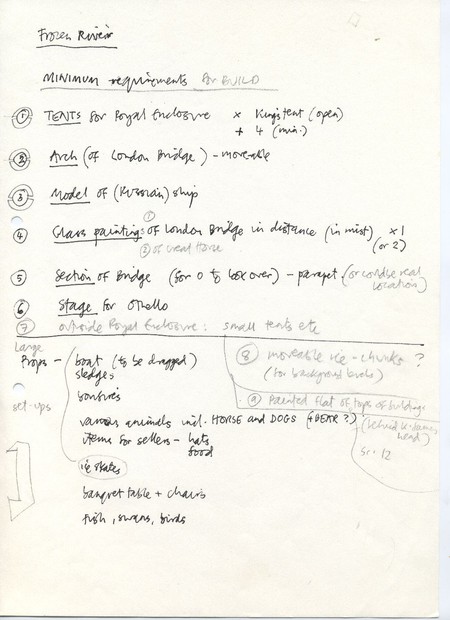 Frozen River
MINIMUM requirements for BUILD
① TENTS for Royal Enclosure × King's tent (open)
+ 4 (min.)
② Arch (of London Bridge) - moveable
③ Model of (Russian) ship
④ Glass paintings: ① of London Bridge in distance (in mist) ×1
(or 2)
② of Great House
⑤ Section of Bridge (for O to look over) - parapet (or combine real
location)
⑥ Stage for Othello
⑦ outside Royal Enclosure: small tents etc
Large
Props - boat (to be dragged)
sledges
bonfires
set-ups
various animals incl. HORSE and DOGS (+BEAR?)
items for sellers - hats
food
ice skates
banquet table + chairs
fish, swans, birds
⑧ moveable ice-chunks ?
(for background levels)
⑨ Painted flat of tops of buildings
(behind K. James
head)
Sc. 12